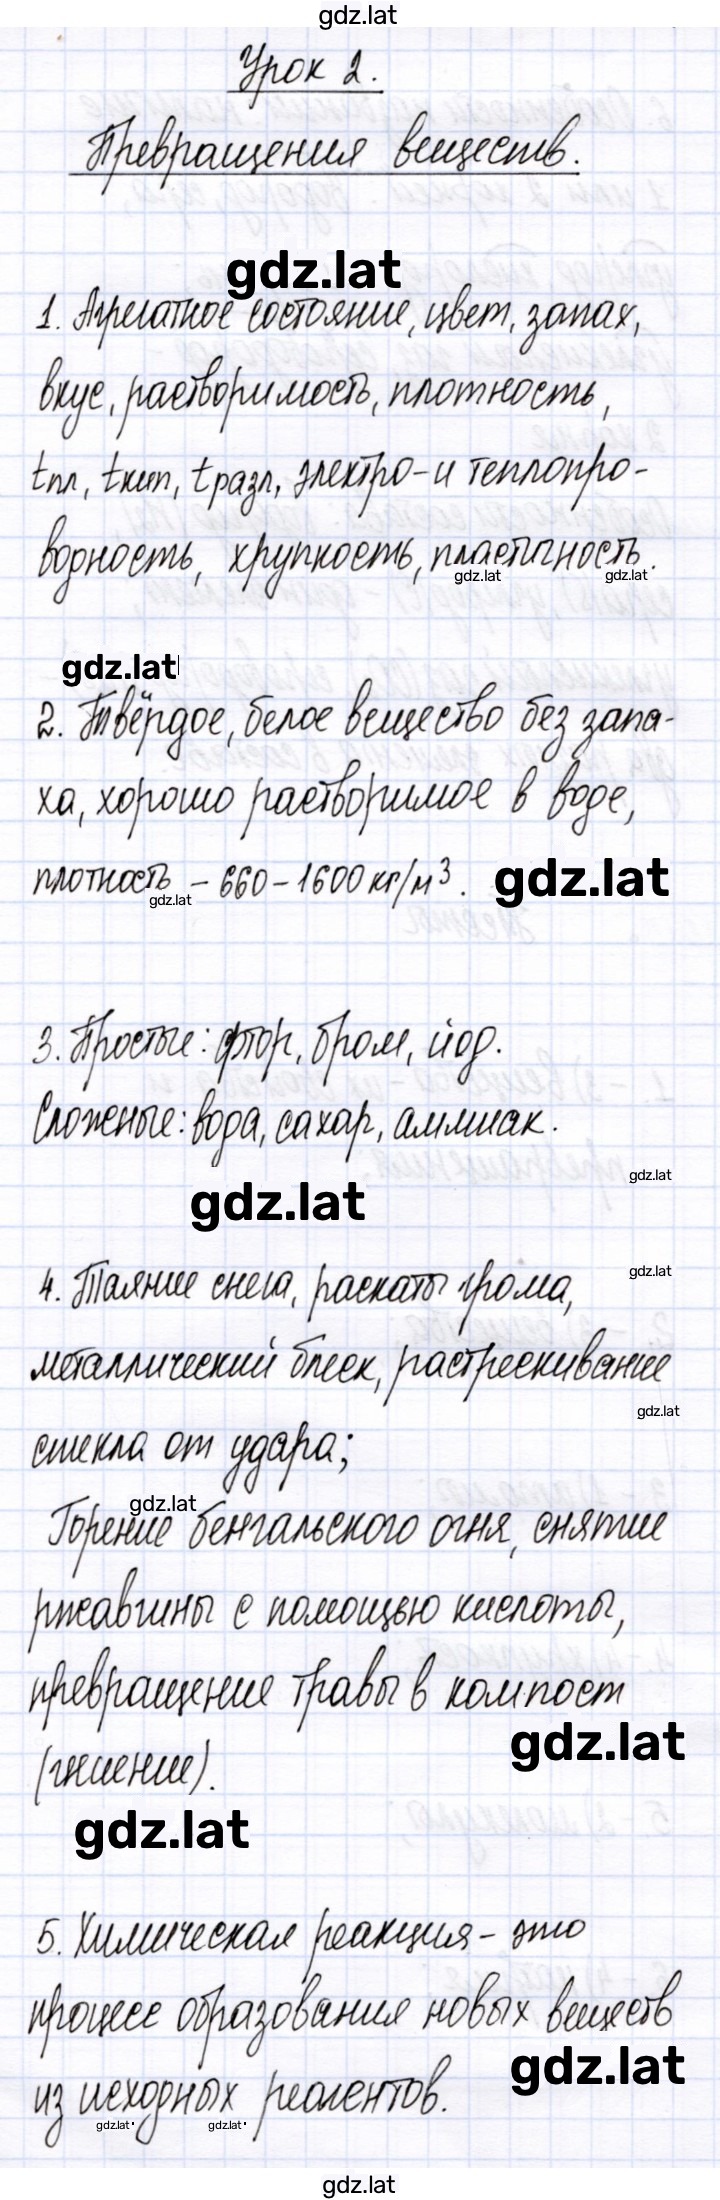 gdz.lat
Урок 2.
Превращения веществ.
gdz.lat
1. Агрегатное состояние, цвет, запах,
вкус, растворимость, плотность,
tпл, tкип, tразл, электро- и теплопро-
водность, хрупкость, пластичность.
gdz.lat gdz.lat
gdz.lat
2. Твёрдое, белое вещество без запа-
ха, хорошо растворимое в воде,
плотность - 660-1600 кг/м³. gdz.lat
gdz.lat
3. Простые: фтор, бром, йод.
Сложные: вода, сахар, аммиак.
gdz.lat
gdz.lat
gdz.lat
4. Таяние снега, раскаты грома,
металлический блеск, растрескивание
gdz.lat
стекла от удара;
gdz.lat
Горение бенгальского огня, снятие
ржавчины с помощью кислоты,
превращение травы в компост
gdz.lat
(гниение).
gdz.lat
5. Химическая реакция - это
процесс образования новых веществ
gdz.lat
из исходных реагентов.
gdz.lat gdz.lat
gdz.lat